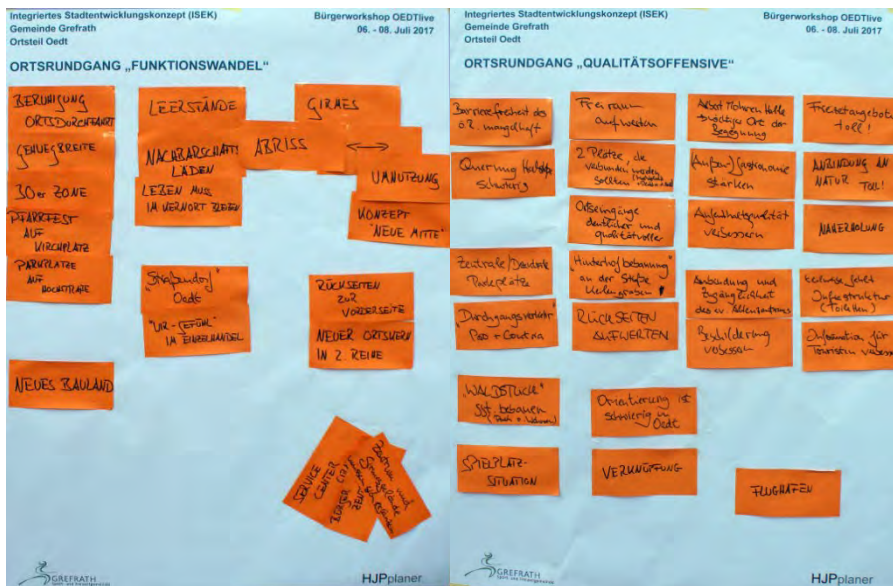 Integriertes Stadtentwicklungskonzept (ISEK)
Gemeinde Grefrath
Ortsteil Oedt
Bürgerworkshop OEDTlive
06. - 08. Juli 2017
ORTSRUNDGANG „FUNKTIONSWANDEL"
BERUHIGUNG
ORTSDURCHFAHRT
GEHWEGBREITE
30er ZONE
PFARRFEST
AUF
KIRCHPLATZ
PARKPLÄTZE
AUF
HOCHSTRAẞE
NEUES BAULAND
LEERSTÄNDE
NACHBARSCHAFTS
LADEN
LEBEN MUSS
IM KERNORT BLEIBEN
"Straßendorf"
Oedt
"UR-GEFÜHL"
IM EINZELHANDEL
GIRMES
ABRISS
↔
UMNUTZUNG
KONZEPT
"NEUE MITTE"
RÜCKSEITEN
ZUR
VORDERSEITE
NEUER ORTSKERN
IN 2. REIHE
SERVICE
CENTER
BÜRGER
Zentrum und
Girmesgelände
GREFRATH
Sport- und Freizeitgemeinde
HJPplaner
Integriertes Stadtentwicklungskonzept (ISEK)
Gemeinde Grefrath
Ortsteil Oedt
Bürgerworkshop OEDTlive
06. - 08. Juli 2017
ORTSRUNDGANG „QUALITÄTSOFFENSIVE"
Barrierefreiheit des
ö.R. mangelhaft
Querung Hochstraße
schwierig
Zentrale/Dezentrale
Parkplätze
"Durchgangsverkehr"
Pro + Contra
"WALDSTÜCK"
Sst. bebauen
SPIELPLATZ-
SITUATION
Freiraum
aufwerten
2 Plätze, die
verbunden werden
sollten
Ortseingänge
deutlicher und
qualitätvoller
"Hinterhofbebauung"
an der Straße
RÜCKSEITEN
AUFWERTEN
Orientierung ist
schwierig in
Oedt
VERKNÜPFUNG
Albert Mooren Halle
wichtiger Ort der
Begegnung
(Außen-)Gastronomie
stärken
Aufenthaltsqualität
verbessern
Anbindung und
Zugänglichkeit
des ev. Altenzentrums
Beschilderung
verbessern
FLUGHAFEN
Freizeitangebote
toll!
ANBINDUNG AN
NATUR TOLL!
NAHERHOLUNG
teilweise fehlt
Infrastruktur
(Toiletten)
Information für
Touristen verbessern
GREFRATH
Sport- und Freizeitgemeinde
HJPplaner